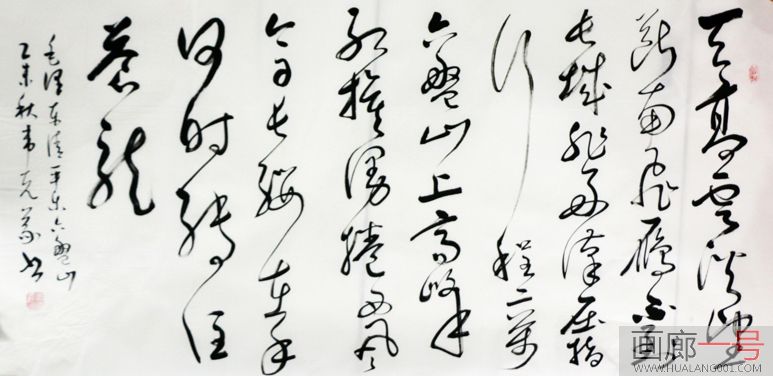 天高云淡望
断南飞雁不到
长城非好汉屈指
行程二万
六盘山上高峰
红旗漫卷西风
今日长缨在手
何时缚住
苍龙
毛泽东清平乐六盘山
乙未秋韦克义书
画廊一号
WWW.HUALANG001.COM